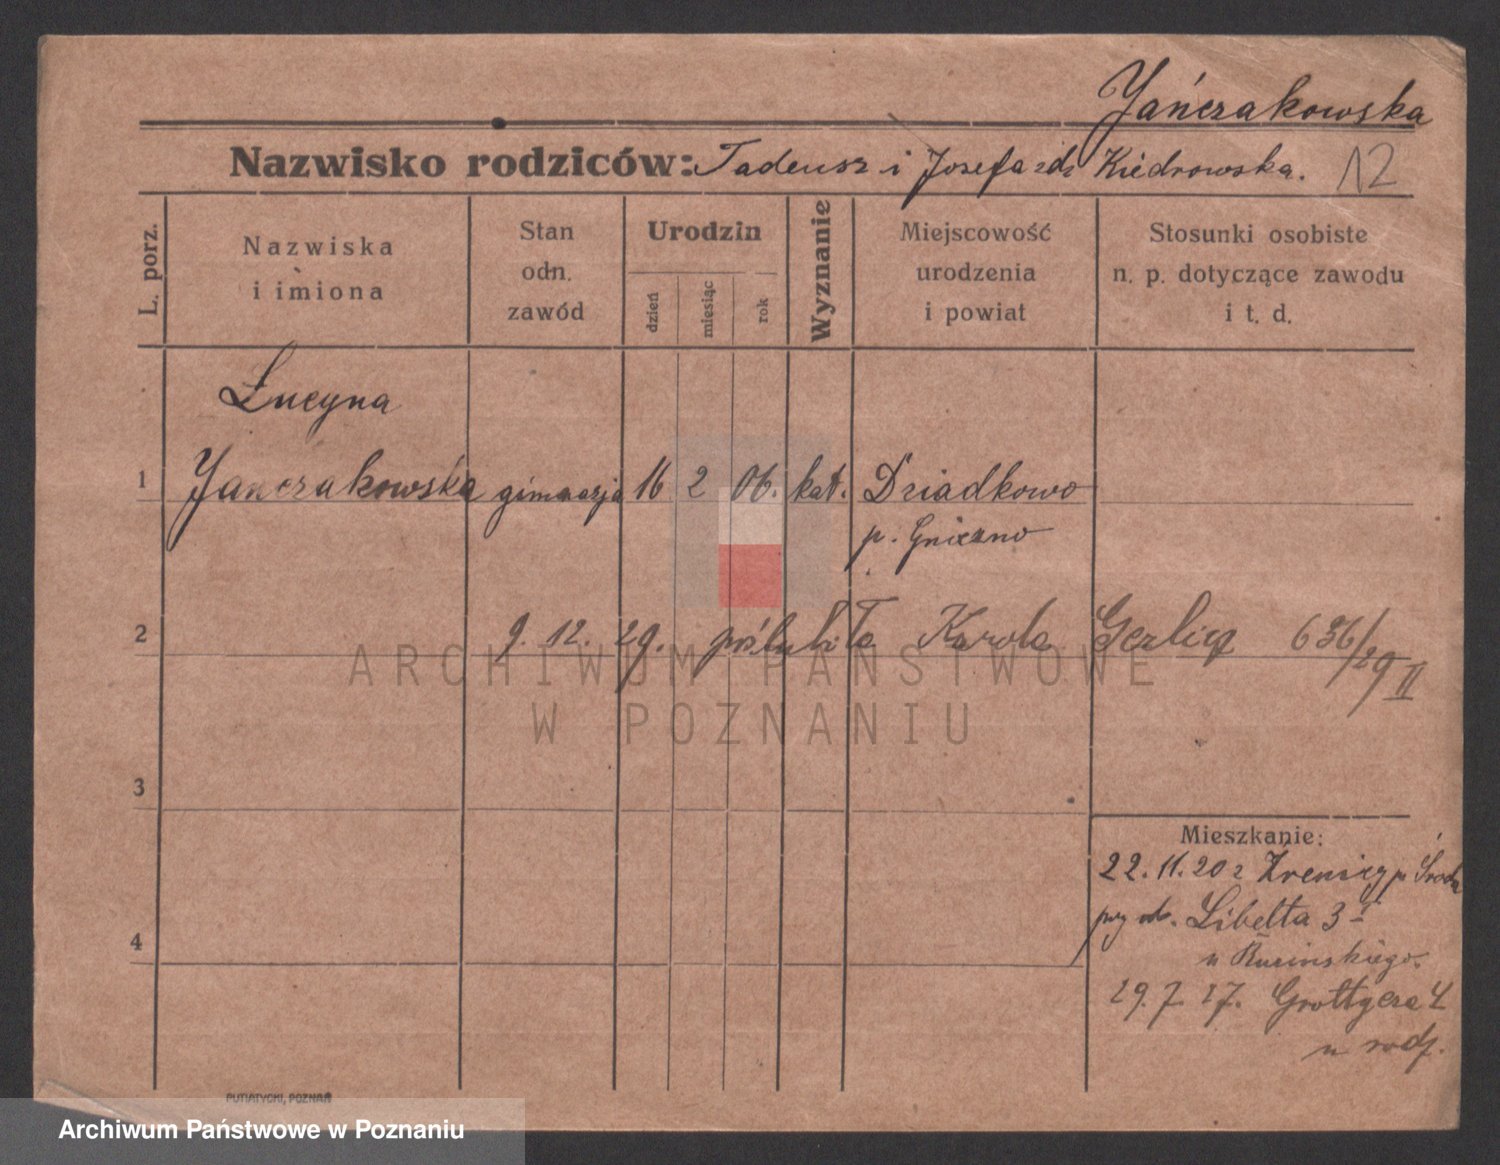 Jańczakowska
Nazwisko rodziców: Tadeusz i Josefa zd. Kiedrowska. 12
L. porz.
Nazwiska
i imiona
Stan
odn.
zawód
Urodzin
dzień
miesiąc
rok
Wyznanie
Miejscowość
urodzenia
i powiat
Stosunki osobiste
n. p. dotyczące zawodu
i t. d.
Łucyna
1 Janczakowska gimnazja 16 2 06. kat. Dziadkowo
p. Gniezno
2 9. 12. 29. poślubiła Karola Gezlicq 636/29 II
ARCHIWUM PAŃSTWOWE
W POZNANIU
3
Mieszkanie:
22.11.20 z Zrenicy p Środa
przy ul. Libelta 3 I
4
u Rusinskiego.
29.7.27. Grottgera 4
u rodz.
PUTIATYCKI, POZNAŃ
Archiwum Państwowe w Poznaniu